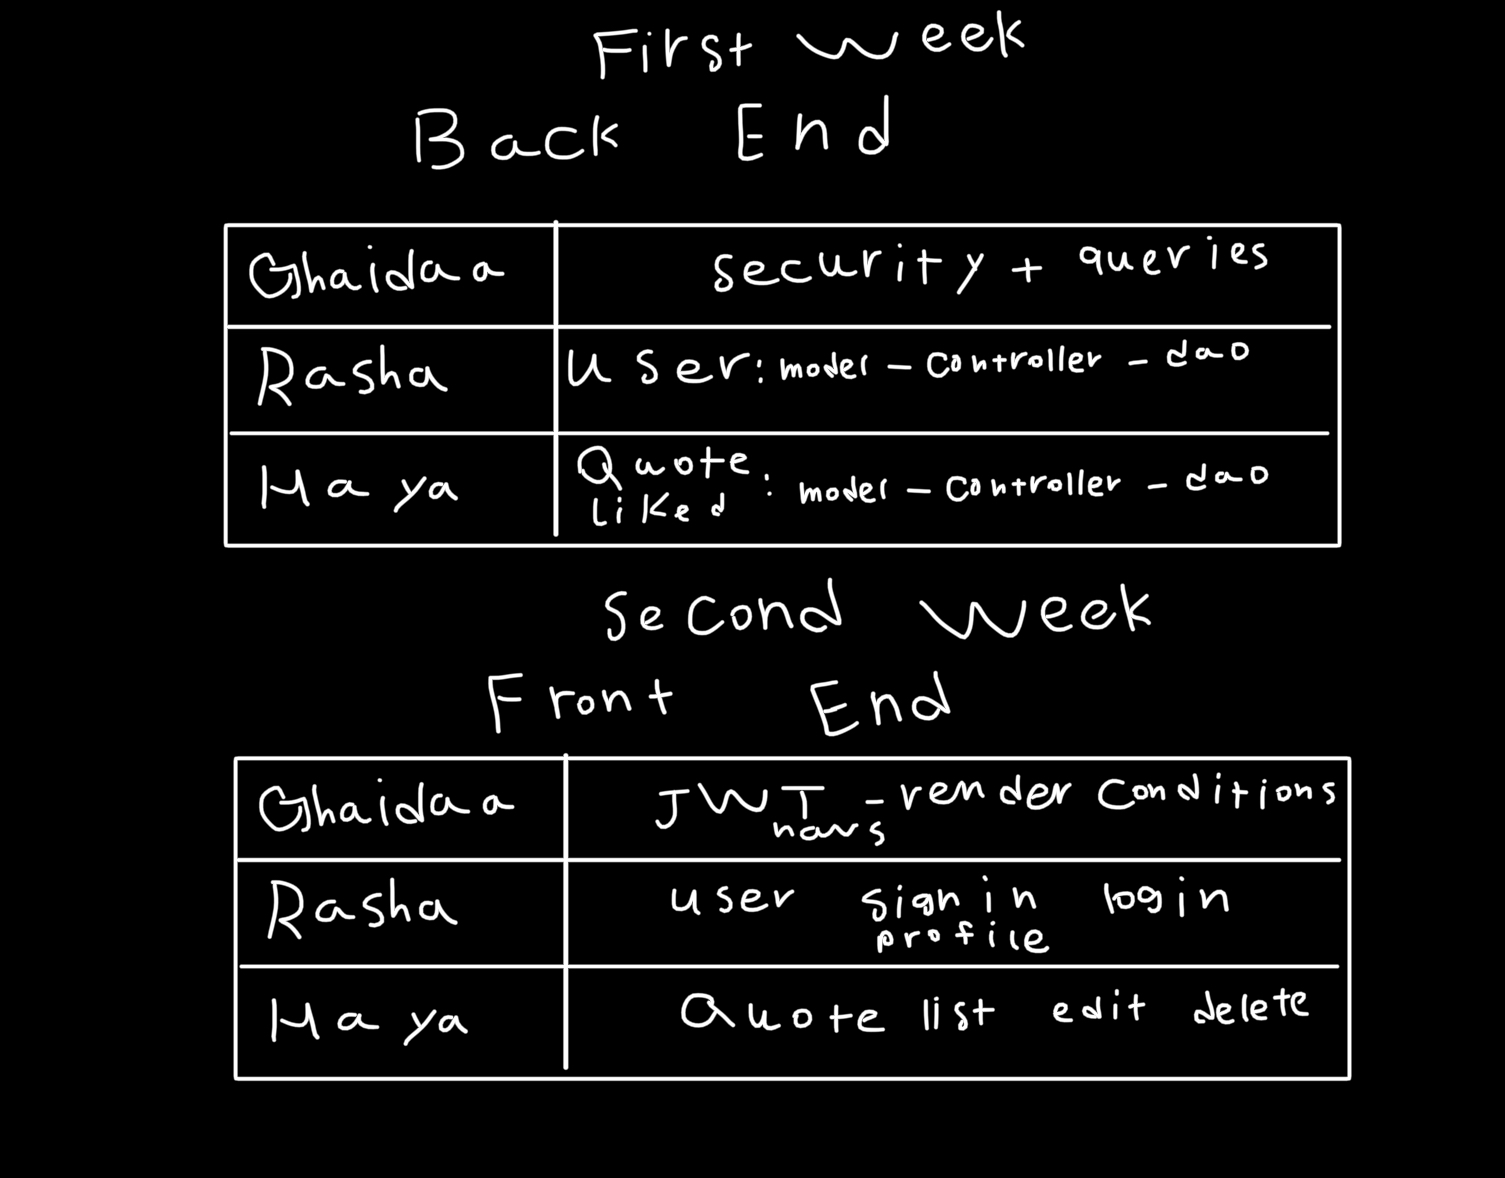 First Week
Back End
Ghaidaa security + queries
Rasha User: model - controller - dao
Haya Quote : model - controller - dao
Liked
Second Week
Front End
Ghaidaa JWT - render conditions
navs
Rasha user sign in login
profile
Haya Quote list edit delete